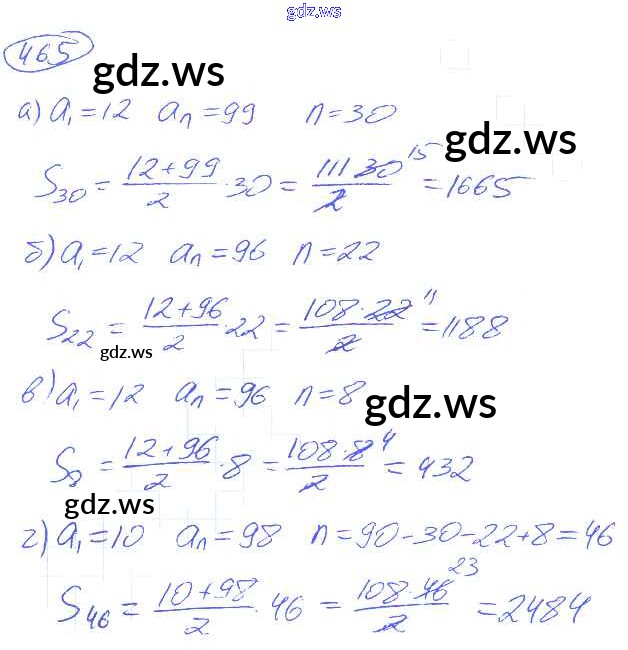 gdz.ws
465
gdz.ws
а) a₁=12 aₙ=99 n=30
gdz.ws
S₃₀ = (12+99)/2 · 30 = (111 30)/2 15 = 1665
б) a₁=12 aₙ=96 n=22
S₂₂ = (12+96)/2 · 22 = (108·22)/2 11 = 1188
gdz.ws
в) a₁=12 aₙ=96 n=8
gdz.ws
S₈ = (12+96)/2 · 8 = (108·8)/2 4 = 432
gdz.ws
г) a₁=10 aₙ=98 n=90-30-22+8=46
S₄₆ = (10+98)/2 · 46 = (108·46)/2 23 = 2484